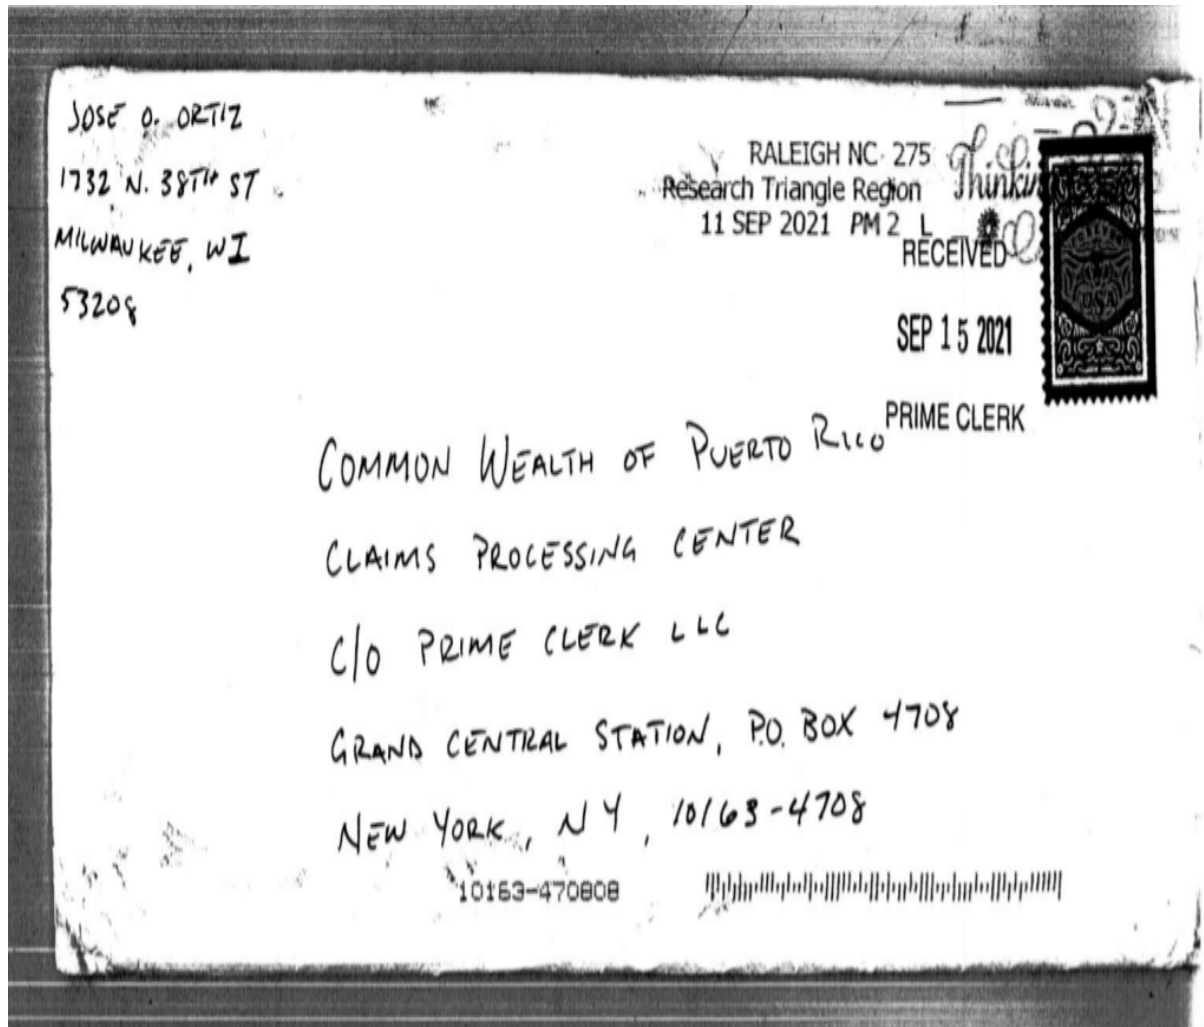 JOSE O. ORTIZ
1732 N. 38TH ST
MILWAUKEE, WI
53208
RALEIGH NC 275
Research Triangle Region
11 SEP 2021 PM 2 L
Thinkin
RECEIVED
SEP 15 2021
PRIME CLERK
USA
COMMON WEALTH OF PUERTO RICO
CLAIMS PROCESSING CENTER
C/O PRIME CLERK LLC
GRAND CENTRAL STATION, P.O. BOX 4708
NEW YORK, NY, 10163-4708
10163-470808